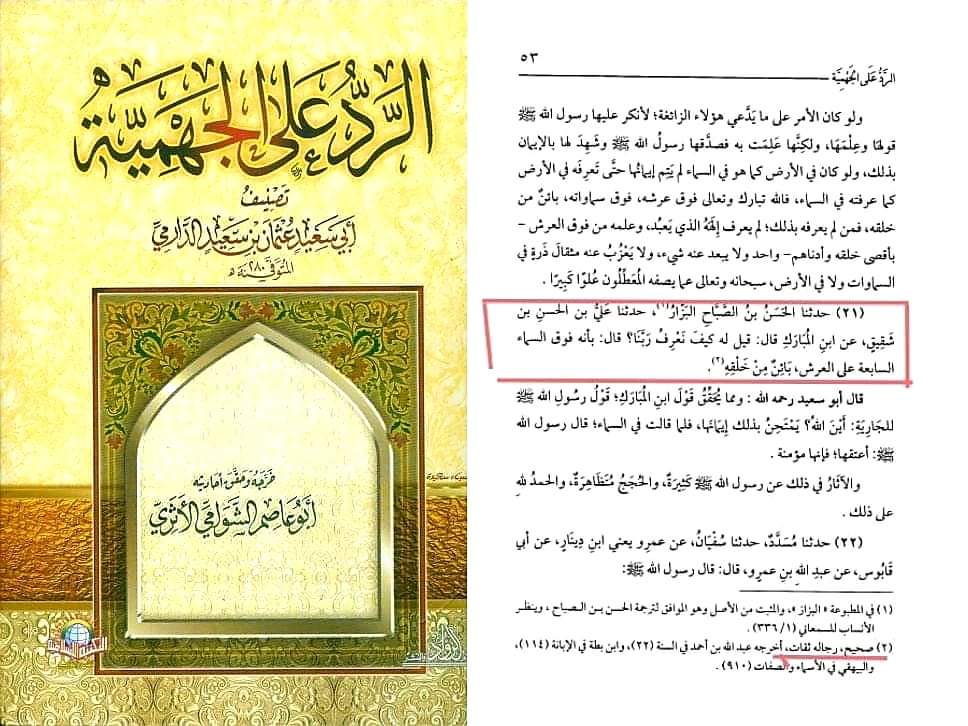 الرَّدُّ عَلَى الجَهْمِيَّة
تصنيف
أبي سعيد عثمان بن سعيد الدارمي
المتوفى سنة ٢٨٠ هـ
خرجه وحقق أحاديثه
أبو عاصم الشوامي الأثري
٥٣
الرَّدُّ عَلَى الجَهْمِيَّة
ولو كان الأمر على ما يَدَّعي هؤلاء الزائغة؛ لأنكر عليها رسول الله ﷺ
قولهَا وعِلْمَهَا، ولكِنَّها عَلِمَت به فصدَّقها رسولُ الله ﷺ وشَهِدَ لها بالإيمان
بذلك، ولو كان في الأرض كما هو في السماء لم يَتِم إيمانُها حتَّى تَعرِفَه في الأرض
كما عرفته في السماء، فالله تبارك وتعالى فوق عرشه، فوق سماواته، بائنٌ من
خلقه، فمن لم يعرفه بذلك؛ لم يعرف إِلَهَهُ الذي يَعبُد، وعلمه من فوق العرش -
بأقصى خلقه وأدناهم- واحد ولا يبعد عنه شيء، ولا يَعْزُبُ عنه مثقالَ ذَرةٍ في
السماوات ولا في الأرض، سبحانه وتعالى عما يصفه المُعَطِّلُون عُلوًا كَبِيرًا .
(٢١) حدثنا الحَسَنُ بنُ الصَّبَّاحِ البَزَّارُ(١)، حدثنا عَلِيُّ بن الحسنِ بن
شَقِيقٍ، عن ابنِ المُبَارَكِ قال: قيل له كيفَ نَعْرِفُ رَبَّنَا؟ قال: بأنه فوق السماء
السابعة على العرش، بَائِنٌ مِنْ خَلْقِهِ(٢).
قال أبو سعيد رحمه الله : ومما يُحَقِّقُ قَوْلَ ابنِ المُبَارَكِ؛ قَوْلُ رسُولِ اللهِ ﷺ
للجَارِيَةِ: أَيْنَ اللهُ؟ يَمْتَحِنُ بذلك إيمَانَها، فلما قالت في السماء؛ قال رسول الله
ﷺ: أعتقها؛ فإنها مؤمنة .
والآثَارُ في ذلك عن رسول الله ﷺ كَثِيرَةٌ، والحُجَجُ مُتَظَاهِرَةٌ، والحمدُ للهِ
على ذلك .
(٢٢) حدثنا مُسَدَّدٌ، حدثنا سُفْيَانُ، عن عمرٍو يعني ابنِ دِينَارٍ، عن أبي
قَابُوس، عن عبدِ اللهِ بنِ عمرٍو، قال: قال رسول الله ﷺ:
(١) في المطبوعة « البزاز »، والمثبت من الأصل وهو الموافق لترجمة الحسن بن الصباح ، وينظر
الأنساب للسمعاني (١/ ٣٣٦) .
(٢) صحيح، رجاله ثقات، أخرجه عبد الله بن أحمد في السنة (٢٢)، وابن بطة في الإبانة (١١٤)،
والبيهقي في الأسماء والصفات (٩١٠) .